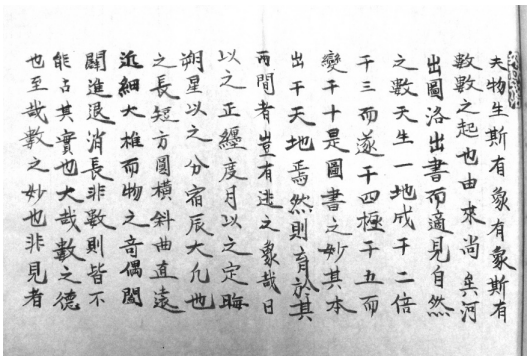 夫物生斯有象有象斯有
數數之起也由來尚矣河
出圖洛出書而適見自然
之數天生一地成于二倍
于三而遂于四極于五而
變于十是圖書之妙其本
出于天地焉然則育於其
兩間者豈有逃之象哉日
以之正纏度月以之定晦
朔星以之分宿辰大凢也
之長短方圓橫斜曲直遠
近細大椎而物之奇偶闔
闢進退消長非數則皆不
能占其實也大哉數之德
也至哉數之妙也非見者